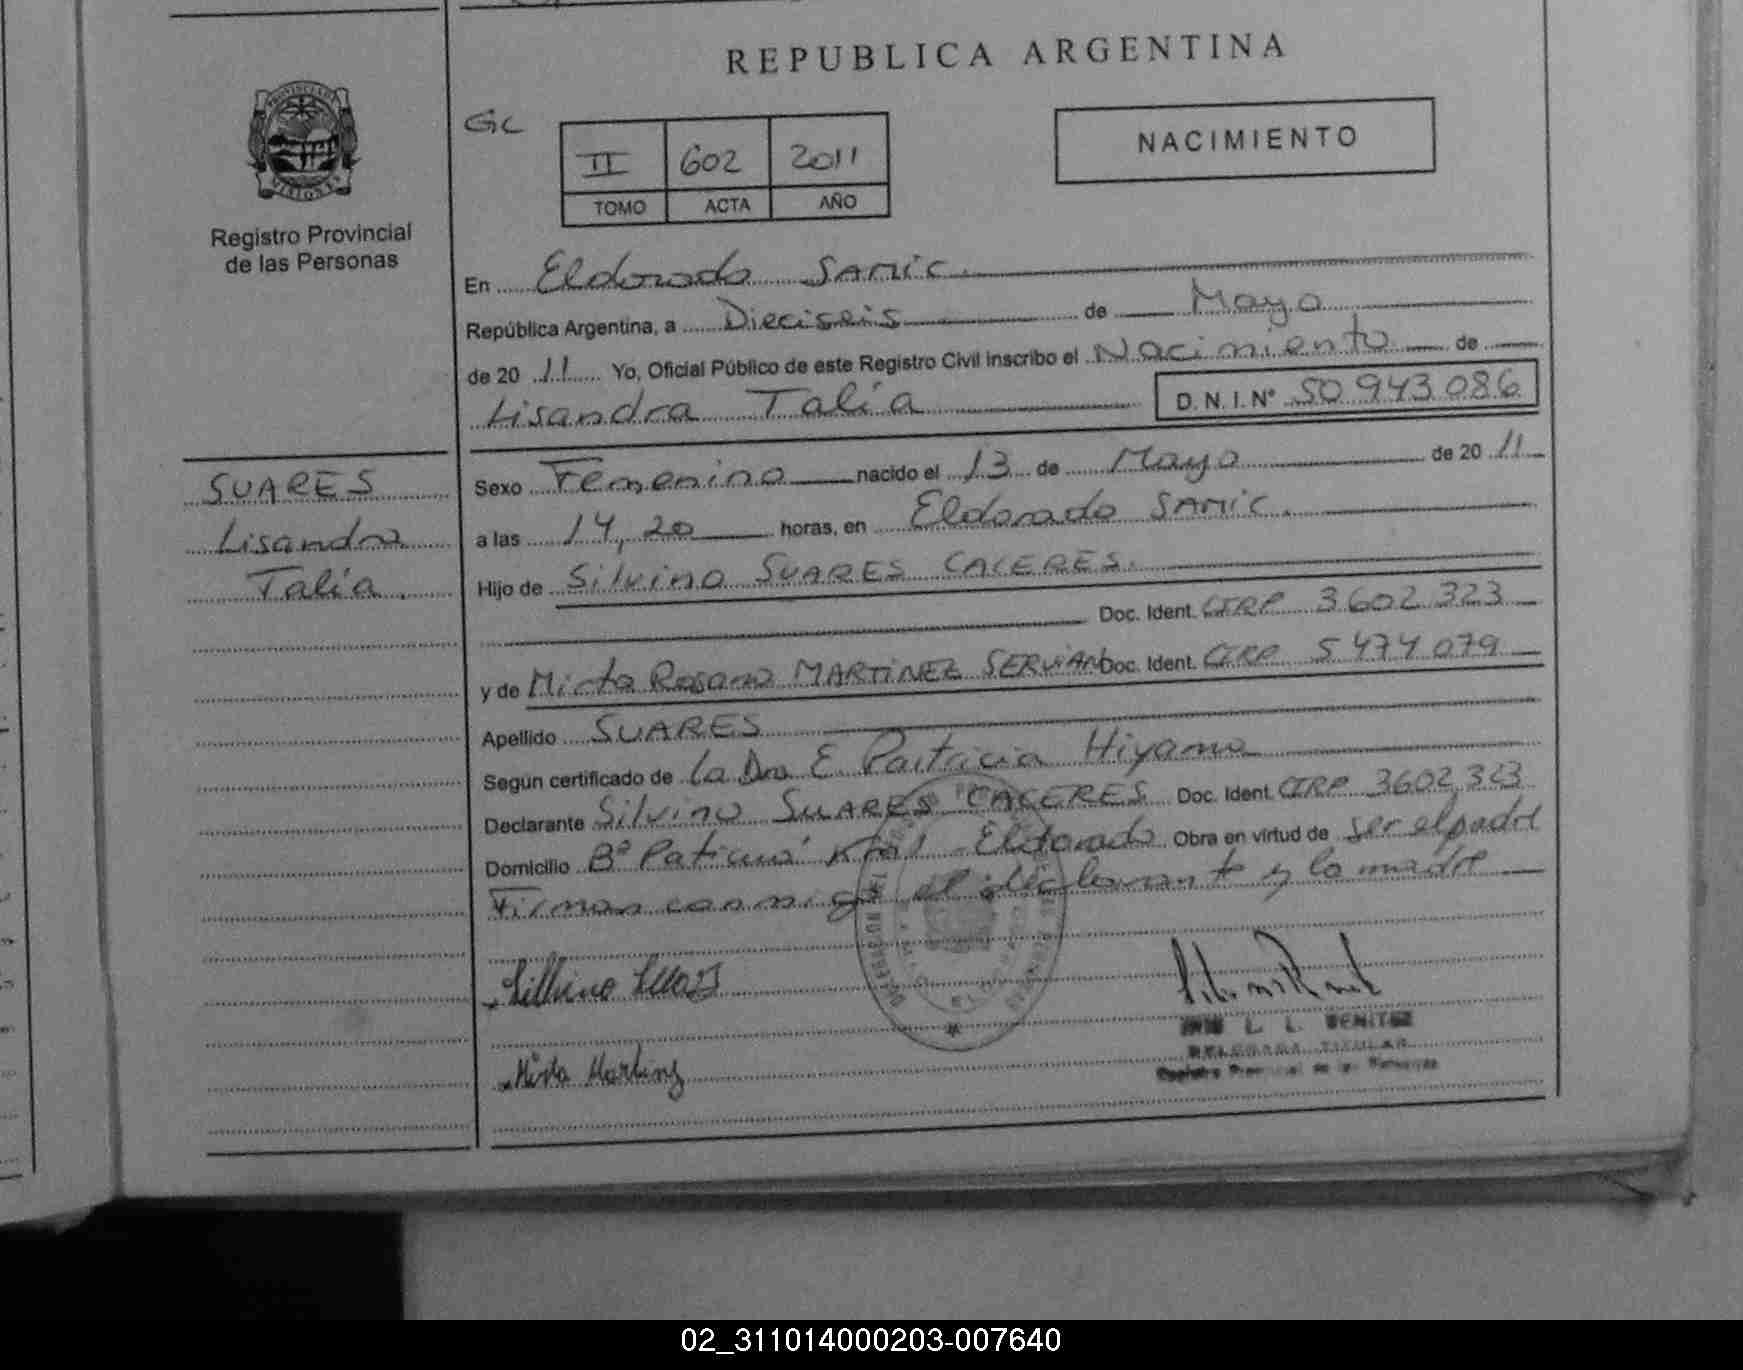 REPUBLICA ARGENTINA
PROVINCIA DE
MISIONES
Registro Provincial
de las Personas
GC
II 602 2011
TOMO ACTA AÑO
NACIMIENTO
En Eldorado SAMIC.
República Argentina, a Dieciseis de Mayo
de 20 11 Yo, Oficial Público de este Registro Civil inscribo el Nacimiento de
Lisandra Talía D.N.I.Nº 50 943 086
SUARES
Lisandra
Talía.
Sexo Femenino nacido el 13 de Mayo de 20 11
a las 14,20 horas, en Eldorado SAMIC.
Hijo de Silvino SUARES CACERES.
Doc. Ident. CIRP 3602 323
y de Mirta Rosana MARTINEZ SERVIAN Doc. Ident. CIRP 5474 079
Apellido SUARES
Según certificado de la Dra E. Paitricia Hiyama
Declarante Silvino SUARES CACERES Doc. Ident. CIRP 3602 323
Domicilio Bº Eldorado Obra en virtud de ser el padre
Firman conmigo el declarante y la madre
Silvino
Mirta
L. L. BENITEZ
DELEGADA TITULAR
Registro Provincial de las Personas
02_311014000203-007640